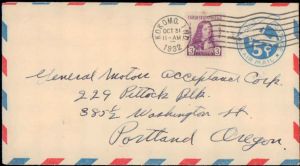 KOKOMO, IND.
OCT 31
11-AM
1932
3
5¢
AIR MAIL
General Motors Acceptance Corp.
229 Pittock Blk.
385½ Washington St.
Portland Oregon.